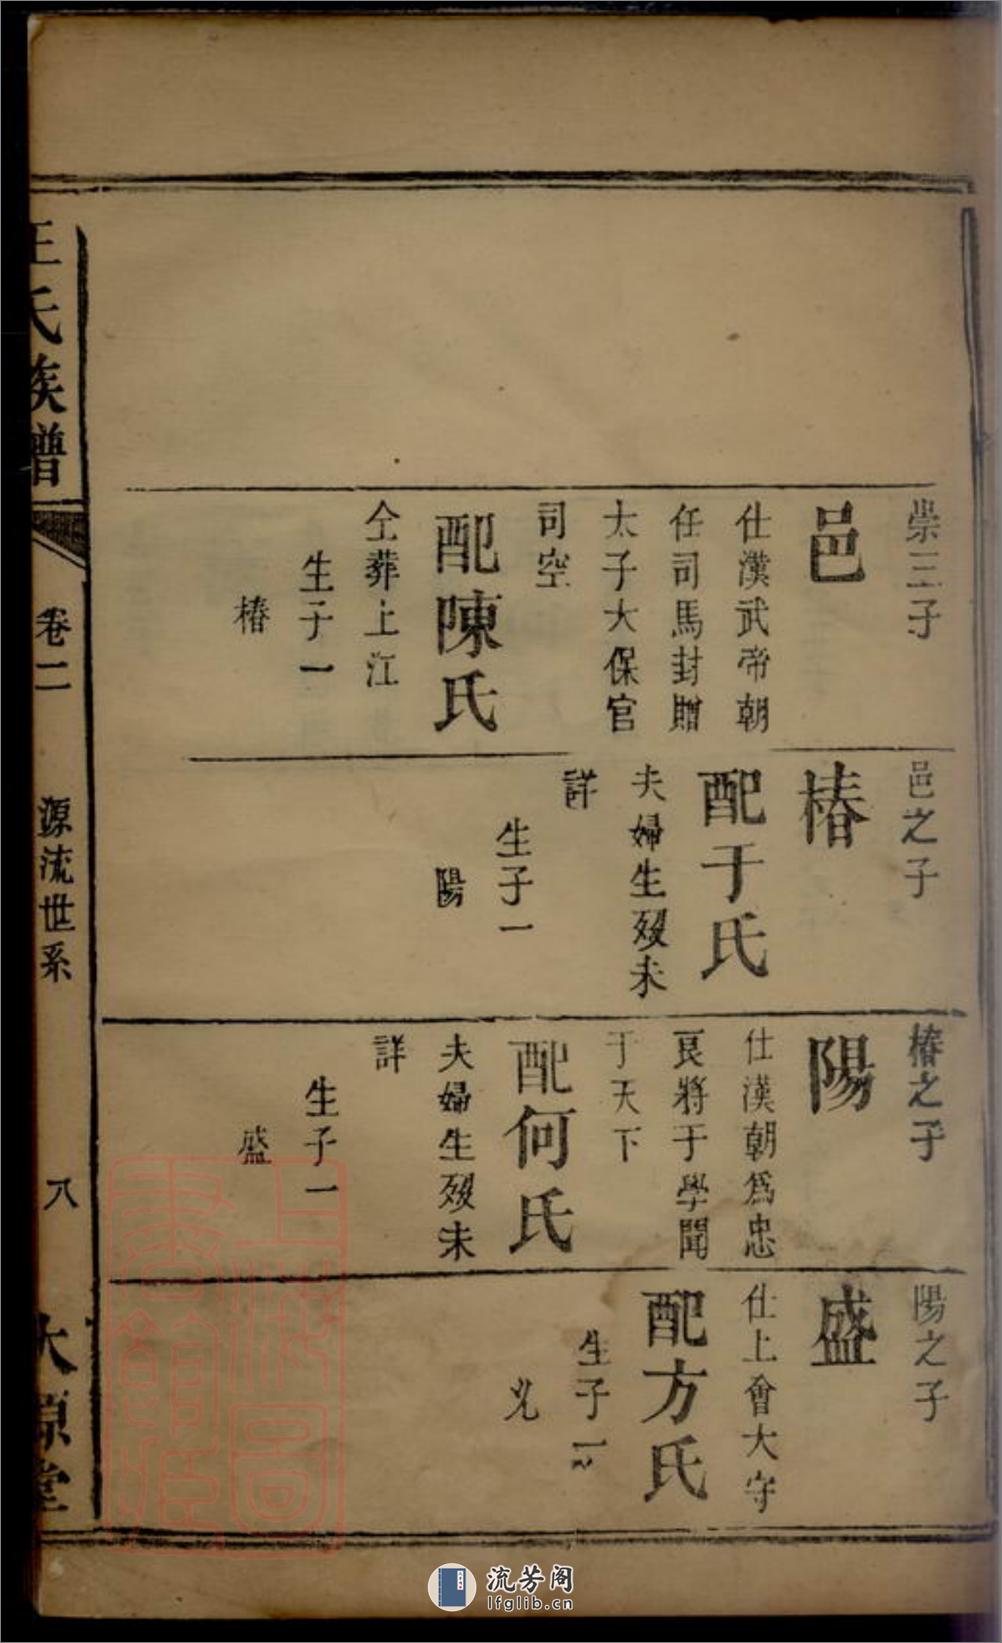 崇三子
邑
仕漢武帝朝
任司馬封贈
太子大保官
司空
配陳氏
仝葬上江
生子一
椿
邑之子
椿
配于氏
夫婦生歿未
詳
生子一
陽
椿之子
陽
仕漢朝為忠
良將于學聞
于天下
配何氏
夫婦生歿未
詳
生子一
盛
陽之子
盛
仕上會大守
配方氏
生子一
王氏族譜
卷二
源流世系
八
大原堂
上海圖
書館藏
流芳阁
lfglib.cn